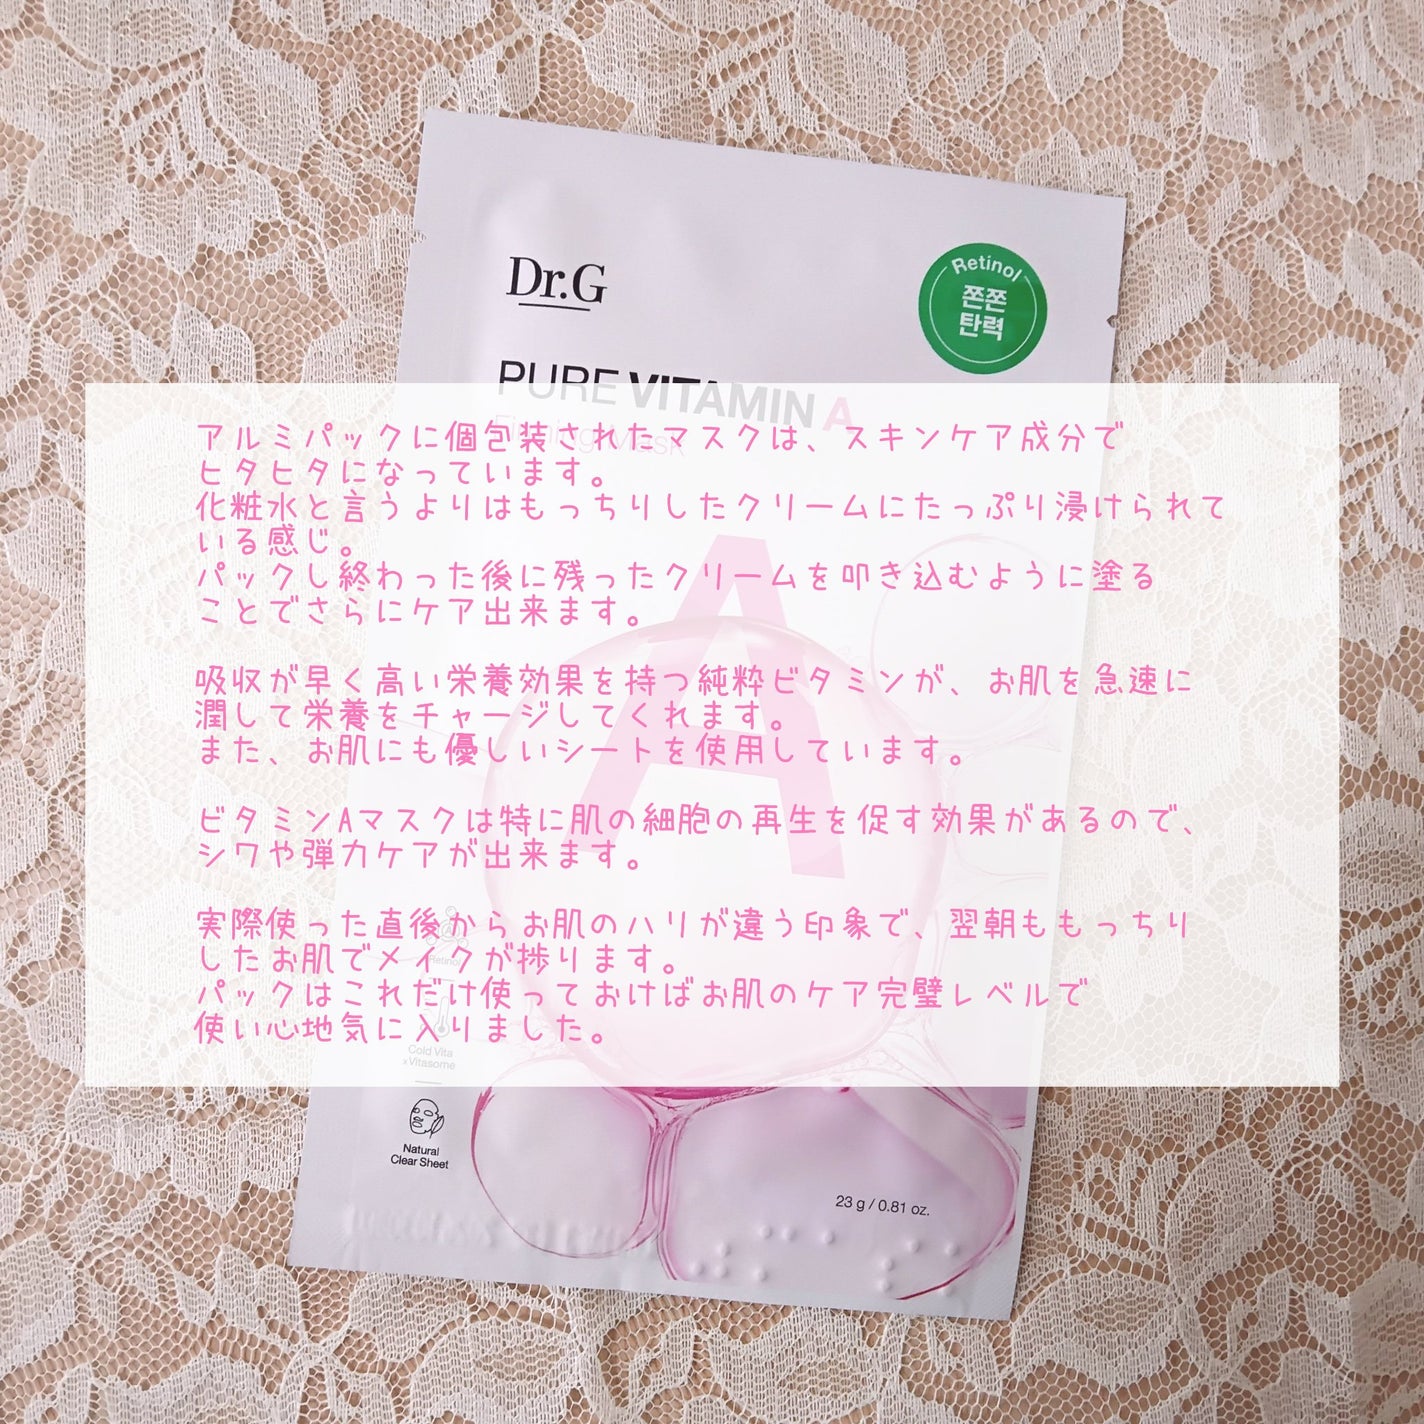 Dr.G
Retinol
쫀쫀
탄력
PURE VITAMIN A
Firming Mask
アルミパックに個包装されたマスクは、スキンケア成分で
ヒタヒタになっています。
化粧水と言うよりはもっちりしたクリームにたっぷり浸けられて
いる感じ。
パックし終わった後に残ったクリームを叩き込むように塗る
ことでさらにケア出来ます。
吸収が早く高い栄養効果を持つ純粋ビタミンが、お肌を急速に
潤して栄養をチャージしてくれます。
また、お肌にも優しいシートを使用しています。
ビタミンAマスクは特に肌の細胞の再生を促す効果があるので、
シワや弾力ケアが出来ます。
実際使った直後からお肌のハリが違う印象で、翌朝ももっちり
したお肌でメイクが捗ります。
パックはこれだけ使っておけばお肌のケア完璧レベルで
使い心地気に入りました。
A
Retinol
Cold Vita
xVitasome
Natural
Clear Sheet
23 g / 0.81 oz.